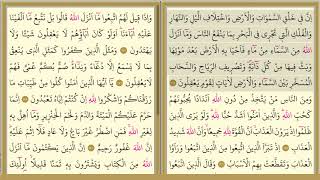 اِنَّ فِي خَلْقِ السَّمٰوَاتِ وَالْاَرْضِ وَاخْتِلَافِ الَّيْلِ وَالنَّهَارِ
وَالْفُلْكِ الَّتِي تَجْرِي فِي الْبَحْرِ بِمَا يَنْفَعُ النَّاسَ وَمَا اَنْزَلَ
اللّٰهُ مِنَ السَّمَاءِ مِنْ مَاءٍ فَاَحْيَا بِهِ الْاَرْضَ بَعْدَ مَوْتِهَا
وَبَثَّ فِيهَا مِنْ كُلِّ دَابَّةٍ وَتَصْرِيفِ الرِّيَاحِ وَالسَّحَابِ
الْمُسَخَّرِ بَيْنَ السَّمَاءِ وَالْاَرْضِ لَاٰيَاتٍ لِقَوْمٍ يَعْقِلُونَ
وَمِنَ النَّاسِ مَنْ يَتَّخِذُ مِنْ دُونِ اللّٰهِ اَنْدَادًا يُحِبُّونَهُمْ
كَحُبِّ اللّٰهِ وَالَّذِينَ اٰمَنُوا اَشَدُّ حُبًّا لِلّٰهِ وَلَوْ يَرَى الَّذِينَ
ظَلَمُوا اِذْ يَرَوْنَ الْعَذَابَ اَنَّ الْقُوَّةَ لِلّٰهِ جَمِيعًا وَاَنَّ اللّٰهَ شَدِيدُ
الْعَذَابِ اِذْ تَبَرَّاَ الَّذِينَ اتُّبِعُوا مِنَ الَّذِينَ اتَّبَعُوا وَرَاَوُا
الْعَذَابَ وَتَقَطَّعَتْ بِهِمُ الْاَسْبَابُ وَقَالَ الَّذِينَ اتَّبَعُوا
وَاِذَا قِيلَ لَهُمُ اتَّبِعُوا مَا اَنْزَلَ اللّٰهُ قَالُوا بَلْ نَتَّبِعُ مَا
اَلْفَيْنَا عَلَيْهِ اٰبَاءَنَا اَوَلَوْ كَانَ اٰبَاؤُهُمْ لَا يَعْقِلُونَ شَيْئًا وَلَا
يَهْتَدُونَ وَمَثَلُ الَّذِينَ كَفَرُوا كَمَثَلِ الَّذِي يَنْعِقُ
بِمَا لَا يَسْمَعُ اِلَّا دُعَاءً وَنِدَاءً صُمٌّ بُكْمٌ عُمْيٌ فَهُمْ
لَا يَعْقِلُونَ يَا اَيُّهَا الَّذِينَ اٰمَنُوا كُلُوا مِنْ طَيِّبَاتِ مَا
رَزَقْنَاكُمْ وَاشْكُرُوا لِلّٰهِ اِنْ كُنْتُمْ اِيَّاهُ تَعْبُدُونَ اِنَّمَا
حَرَّمَ عَلَيْكُمُ الْمَيْتَةَ وَالدَّمَ وَلَحْمَ الْخِنْزِيرِ وَمَا اُهِلَّ بِهِ
لِغَيْرِ اللّٰهِ فَمَنِ اضْطُرَّ غَيْرَ بَاغٍ وَلَا عَادٍ فَلَا اِثْمَ عَلَيْهِ
اِنَّ اللّٰهَ غَفُورٌ رَحِيمٌ اِنَّ الَّذِينَ يَكْتُمُونَ مَا اَنْزَلَ
اللّٰهُ مِنَ الْكِتَابِ وَيَشْتَرُونَ بِهِ ثَمَنًا قَلِيلًا اُولٰئِكَ